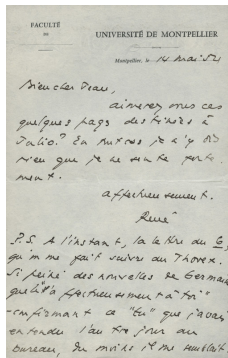 FACULTÉ
DE
UNIVERSITÉ DE MONTPELLIER
Montpellier, le 14 mai 52
Bien cher Jean,
aimerez vous ces
quelques pages destinées à
Julio? En autres je n'y
rien que je ne sente forte
ment.
affectueusement.
René
P.S. A l'instant, la lettre du 6,
qu'on me fait suivre du Thorex.
Si peiné des nouvelles de Germaine
affectueusement à toi"
confirmant ce "tu" que j'avais
entendu l'autre jour au
bureau, du moins il me semblait